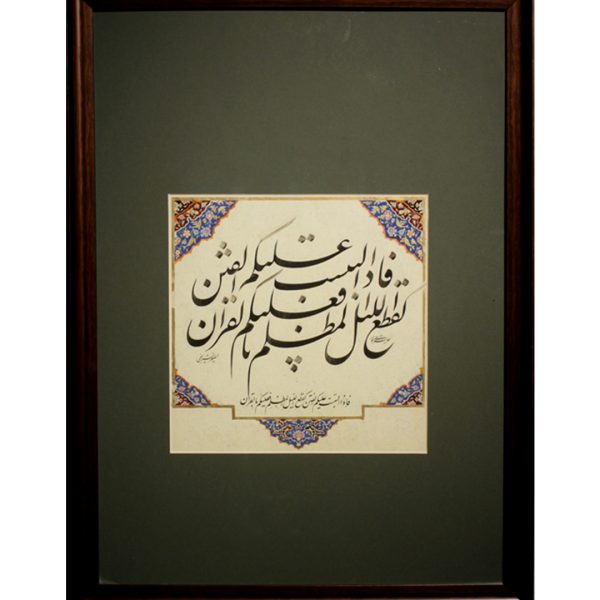 فاذا التبست علیکم الفتن
کقطع اللیل المظلم فعلیکم بالقرآن
فاذا التبست علیکم الفتن کقطع اللیل المظلم فعلیکم بالقرآن